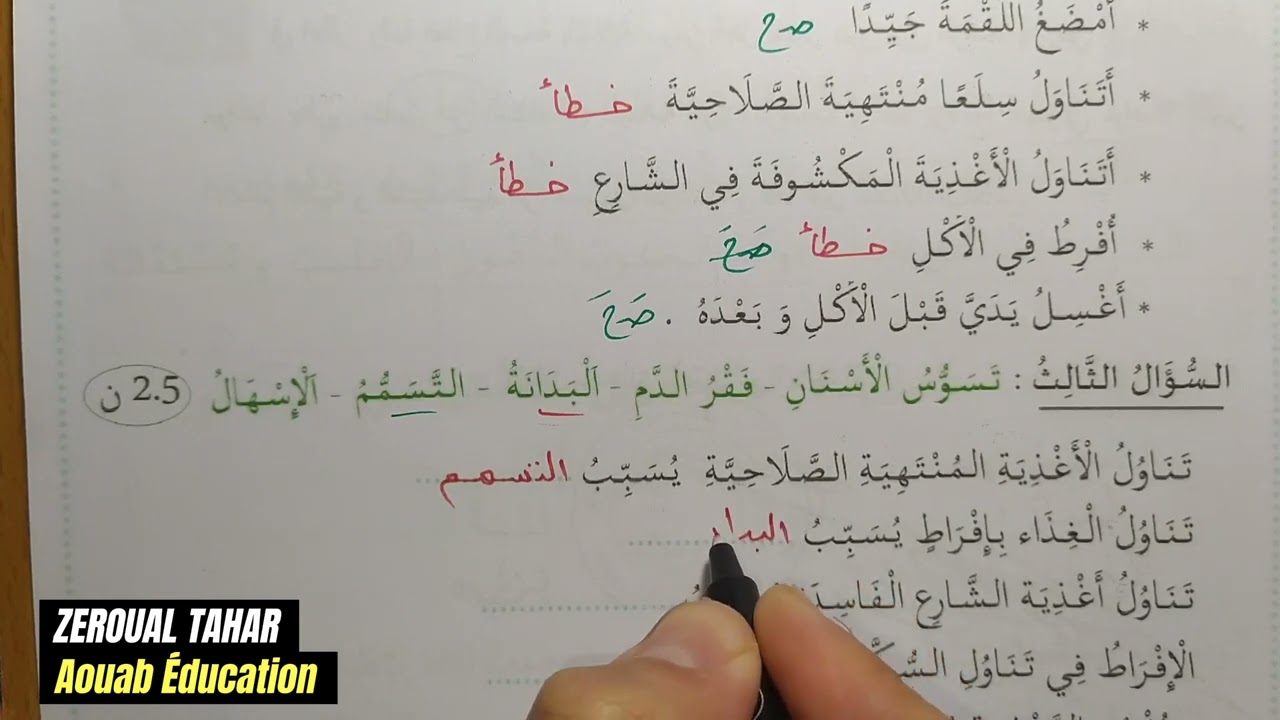 * أَمْضَغُ اللُّقْمَةَ جَيِّدًا صح
* أَتَنَاوَلُ سِلَعًا مُنْتَهِيَةَ الصَّلَاحِيَّةَ خطأ
* أَتَنَاوَلُ الْأَغْذِيَةَ الْمَكْشُوفَةَ فِي الشَّارِعِ خطأ
* أُفْرِطُ فِي الْأَكْلِ خطأ صَحَ
* أَغْسِلُ يَدَيَّ قَبْلَ الْأَكْلِ وَ بَعْدَهُ . صَحَ
السُّؤَالُ الثَّالِثُ : تَسَوُّسُ الْأَسْنَانِ - فَقْرُ الدَّمِ - اَلْبَدَانَةُ - التَّسَمُّمُ - اَلْإِسْهَالُ 2.5 ن
تَنَاوُلُ الْأَغْذِيَةِ المُنْتَهِيَةِ الصَّلَاحِيَّةِ يُسَبِّبُ التسمم
تَنَاوُلُ الْغِذَاء بِإِفْرَاطٍ يُسَبِّبُ البدا
تَنَاوُلُ أَغْذِيَة الشَّارِع
الْإِفْرَاطُ فِي تَنَاوُلِ
ZEROUAL TAHAR
Aouab Éducation